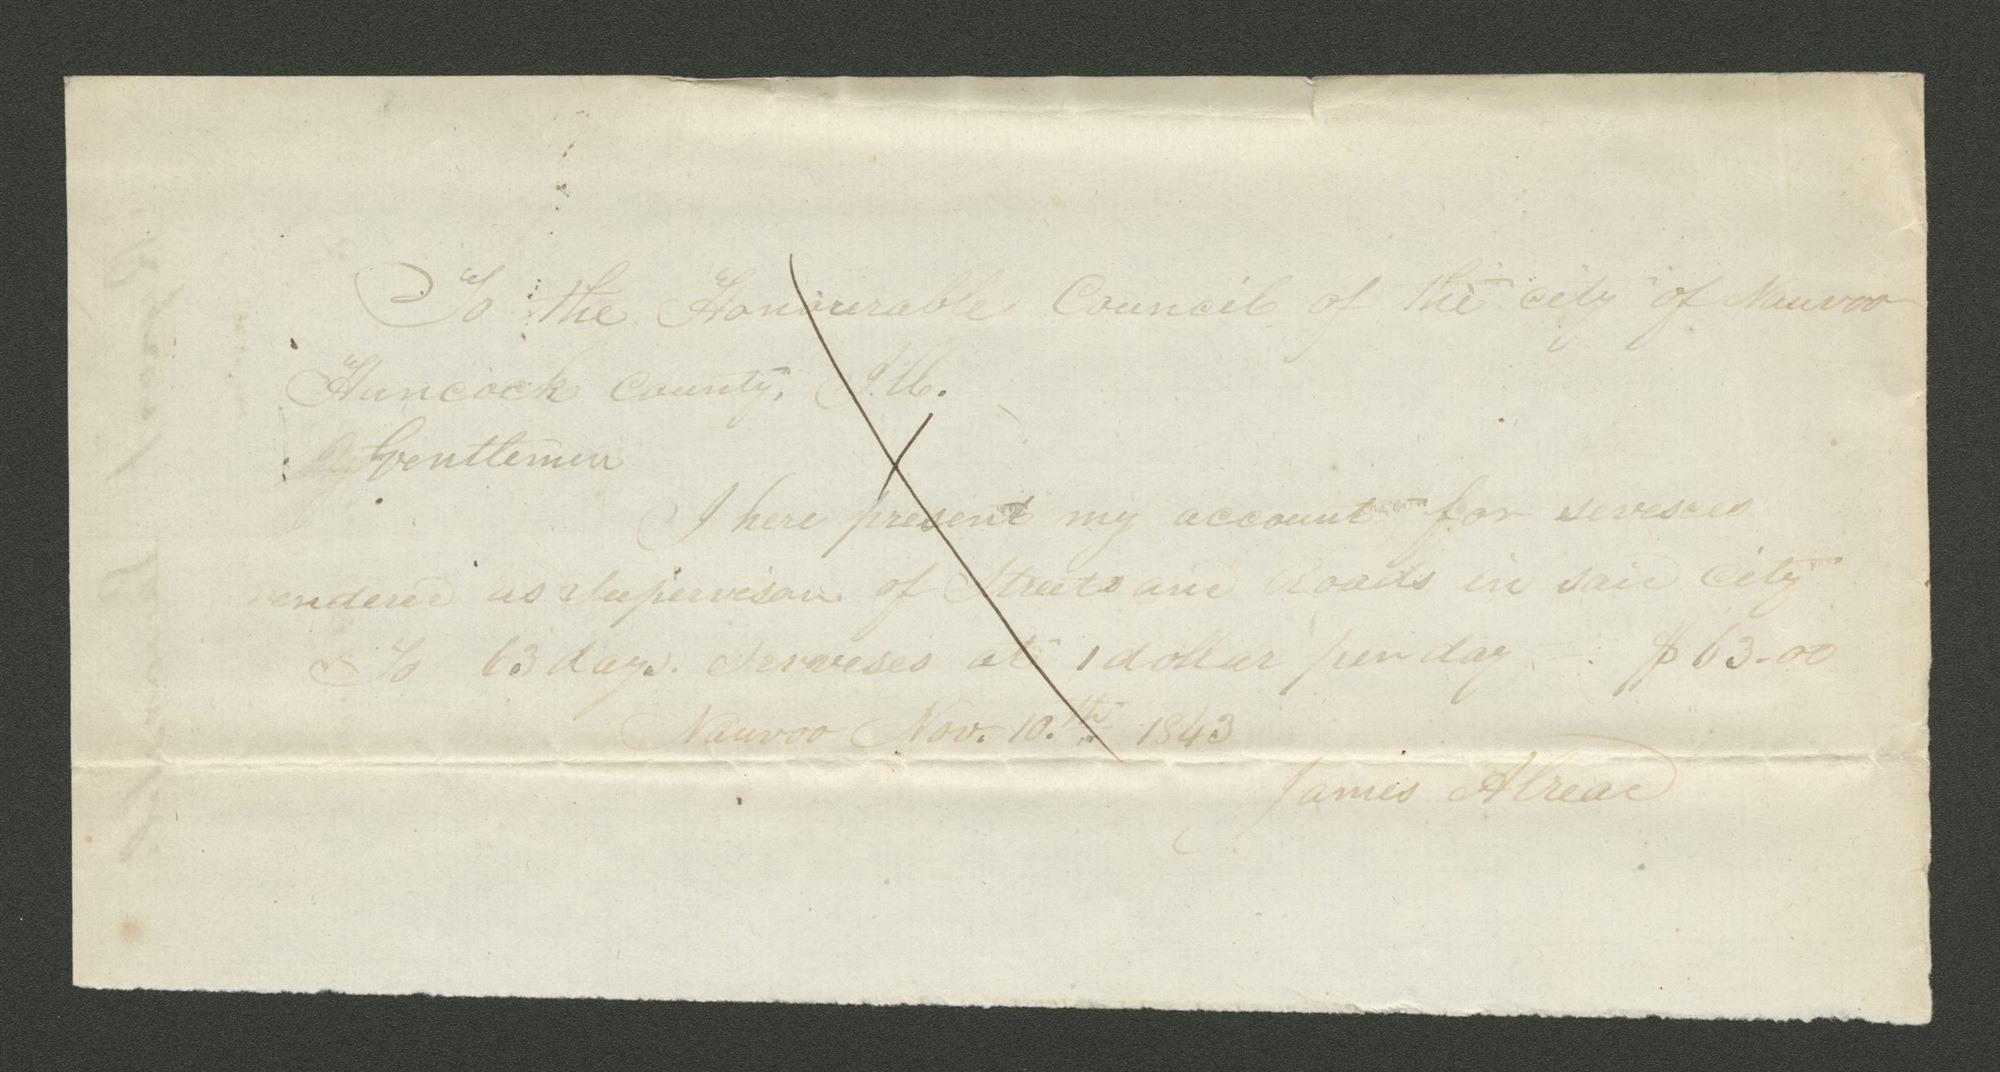 To the Honourable Council of the city of Nauvoo
Hancock County, Ill.
Gentlemen
I here present my account for servises
rendered as Supervison of Streets and Roads in said City
To 63 days. Servises at 1 dollar per day — $63.00
Nauvoo Nov. 10.th 1843
James Alread